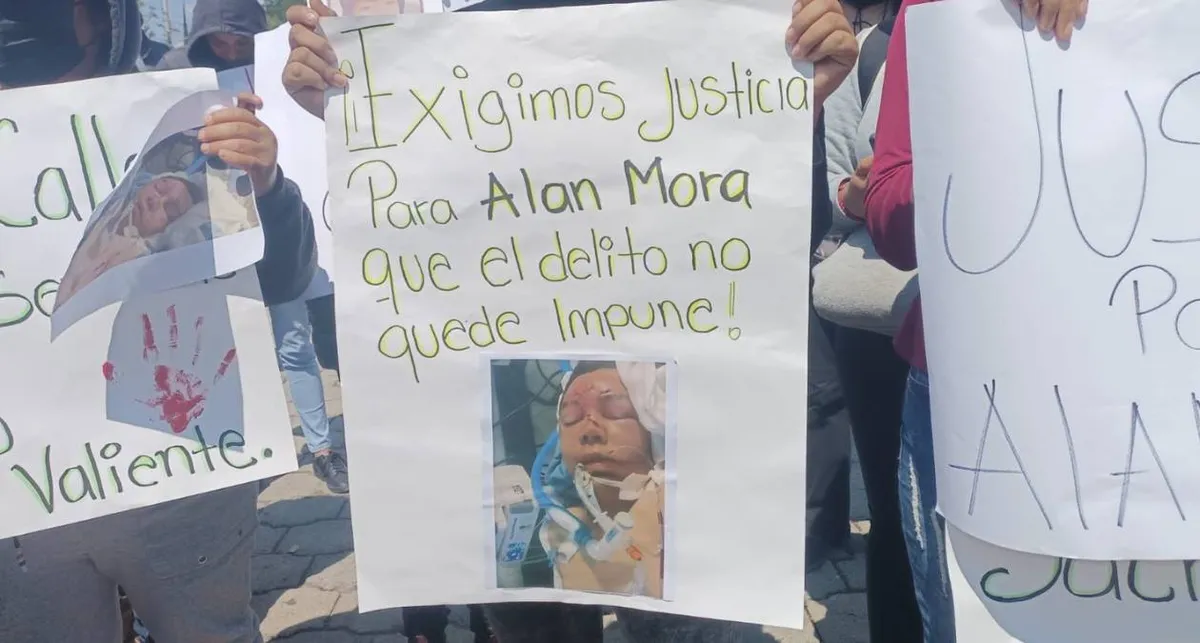 ¡Exigimos Justicia
Para Alan Mora
que el delito no
quede Impune!
Call
Se
Valiente.
JUS
Po
ALAN